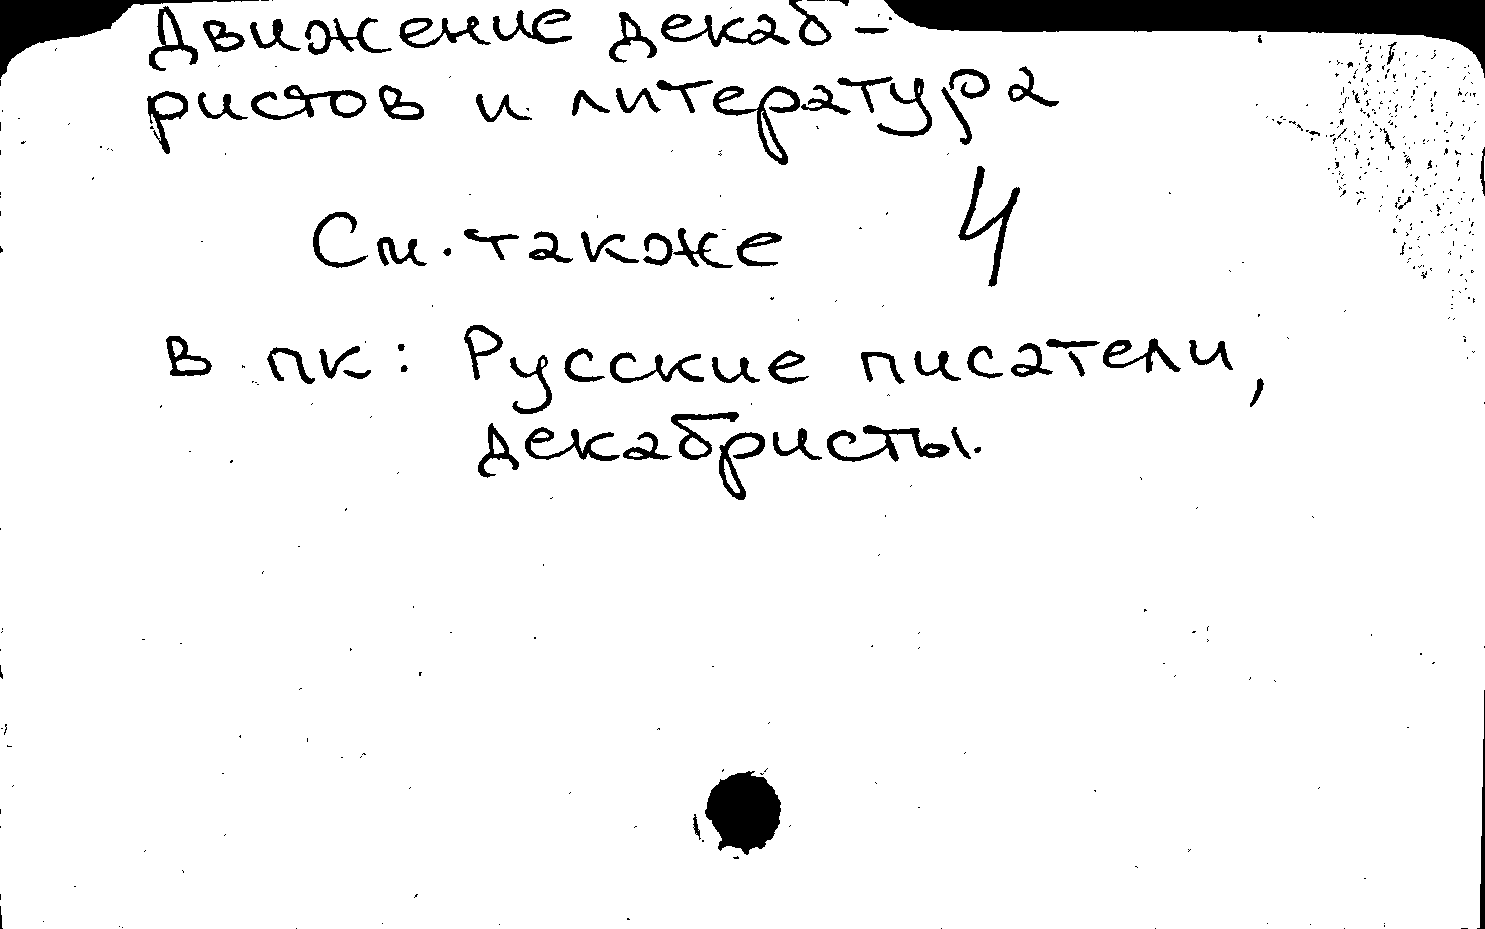 Движение декаб-
ристов и литература
См. также 4
в пк: Русские писатели,
декабристы.